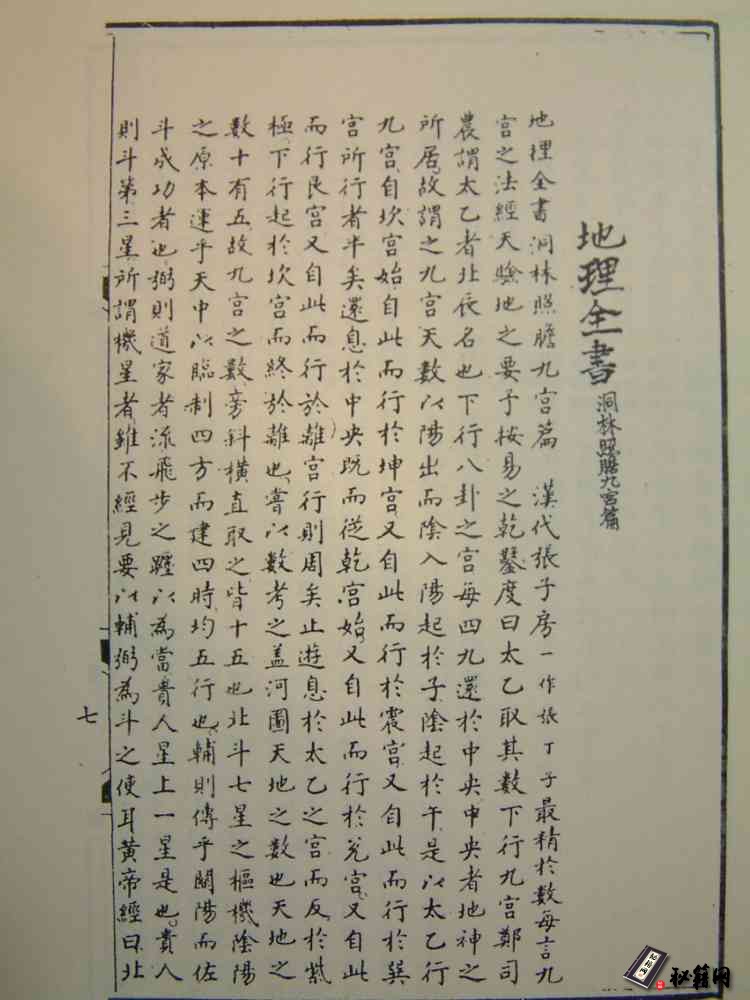 地理全書 洞林照膽九宮篇
地理全書洞林照膽九宮篇 漢代張子房一作張丁子最精於數每言九
宮之法經天驗地之要予按易之乾鑿度曰太乙取其數下行九宮鄭司
農謂太乙者北辰名也下行八卦之宮每四九還於中央中央者地神之
所居故謂之九宮天數以陽出而陰入陽起於子陰起於午是以太乙行
九宮自坎宮始自此而行於坤宮又自此而行於震宮又自此而行於巽
宮所行者半矣還息於中央既而從乾宮始又自此而行於兌宮又自此
而行艮宮又自此而行於離宮行則周矣止遊息於太乙之宮而反於紫
極下行起於坎宮而終於離也嘗以數考之盖河圖天地之數也天地之
數十有五故九宮之數旁斜橫直取之皆十五也北斗七星之樞機陰陽
之原本運乎天中以臨制四方而建四時均五行也輔則傳乎開陽而佐
斗成功者也弼則道家者流飛步之躔以為當貴人星上一星是也貴人
則斗第三星所謂機星者雖不經見要以輔弼為斗之使耳黃帝經曰北
七
秘籍网